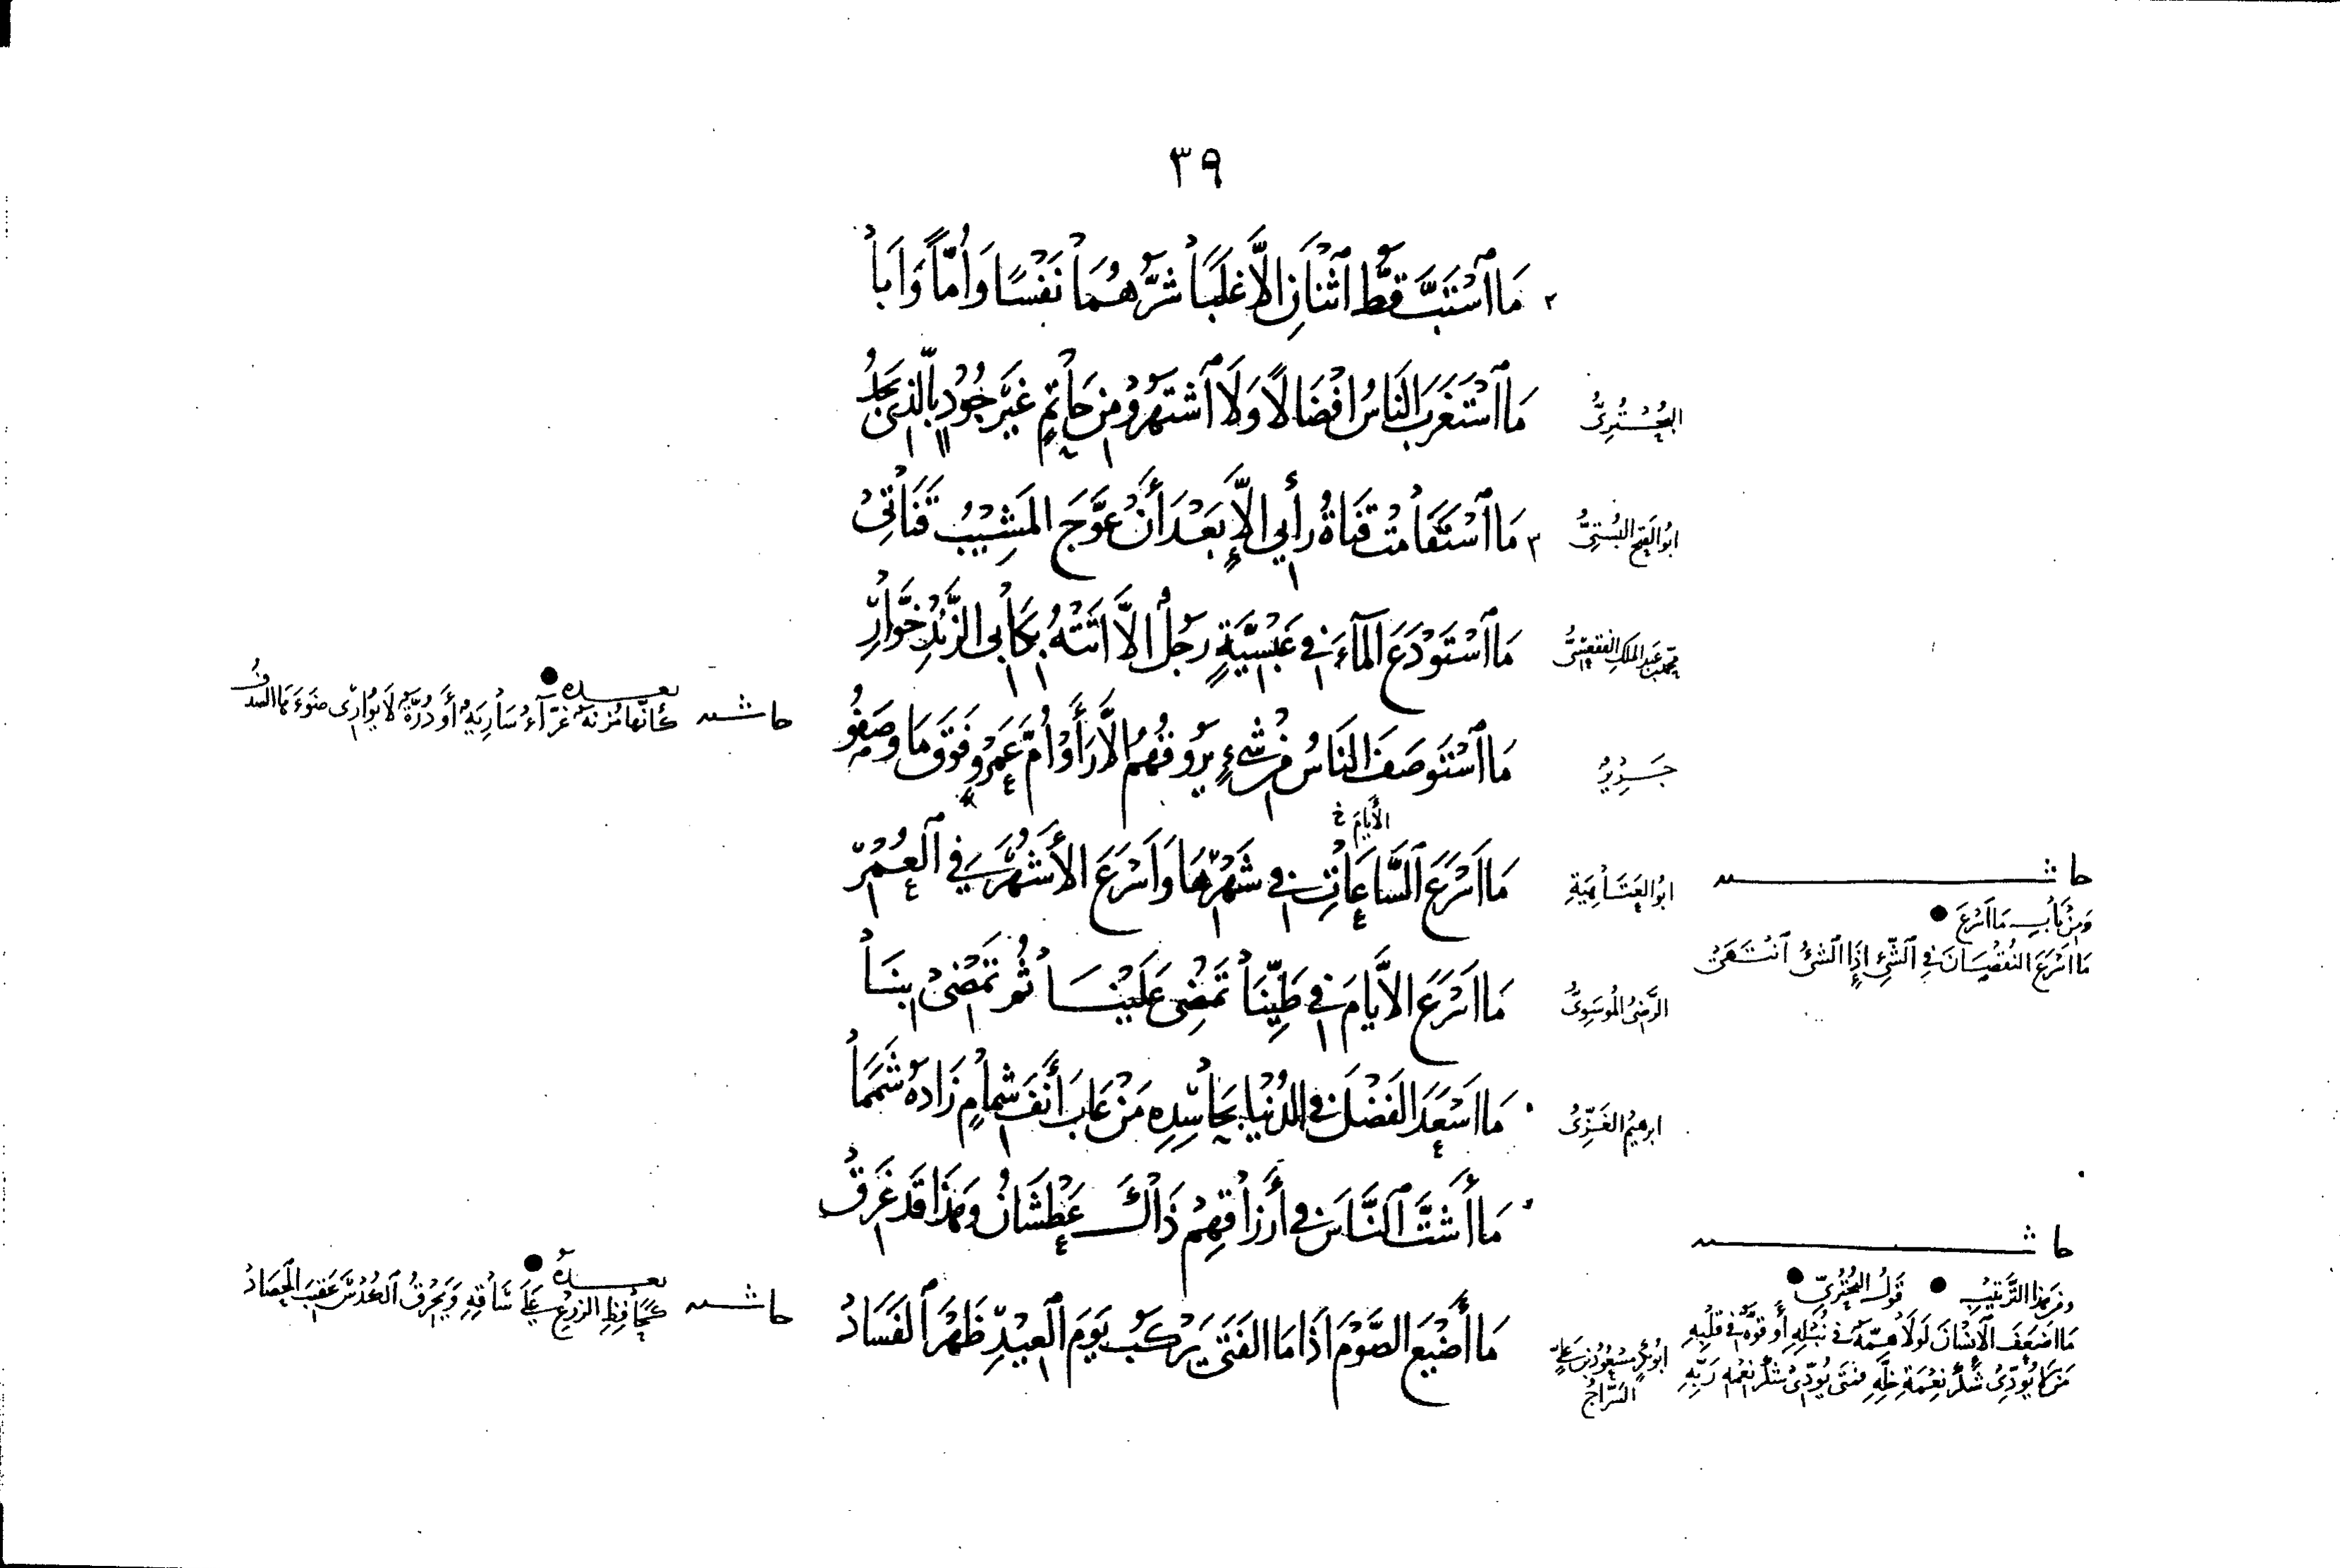 ٣٩
مَا ٱسْتَبَّ قَطُّ ٱثْنَانِ إلَّا غَلَبَا شَرُّهُمَا نَفْسًا وَأُمًّا وَأَبَا
البُحْتُرِيُّ
مَا ٱسْتَغْرَبَ النَّاسُ إفْضَالًا وَلَا ٱشْتَهَرُوْا مِنْ حَاتِمٍ غَيْرَ جُوْدٍ بِالَّذِي يَجِدُ
ابُو الفَتْحِ البُسْتِيُّ
مَا ٱسْتَقَامَتْ قَنَاةُ رَأْيِي إلَّا بَعْدَ أَنْ عَوَّجَ المَشِيْبُ قَنَاتِيْ
محمد بن عَبدِ الملكِ الفقعسيُّ
مَا ٱسْتَوْدَعَ المَآءَ فِي عَبْسِيَّةٍ رَجُلٌ إلَّا أَتَتْهُ بِكَابِي الزَّنْدِ خَوَّارِ
جَرِيْرٌ
مَا ٱسْتَوصَفَ النَّاسُ مِنْ شَيْءٍ يَرُوقُهُمُ إلَّا رَأَوْا أُمَّ عَمْرٍو فَوْقَ مَا وَصَفُوْا
حاشية
بعده
كَأَنَّها مُزْنَةٌ غَرَّآءُ سَارِيَةٌ أَوْ دُرَّةٌ لَا يُوَارِي ضَوْءَهَا الصَّدَفُ
الأَيَّامَ خ
ابُو العَتَاهِيَةِ
مَا أَسْرَعَ السَّاعَاتِ فِي شَهْرِهَا وَأَسْرَعَ الأَشْهُرَ فِي ٱلعُمْرِ
حاشية
وَمِنْ بَابِ مَا أَسْرَعَ
مَا أَسْرَعَ النُقْصَانَ فِي ٱلشَّيْءِ إِذَا الشَّيْءُ ٱنْتَهَىْ
الرَّضِيُّ المُوسَوِيُّ
مَا أَسْرَعَ الأَيَّامَ فِي طَيِّنَا تَمْضِي عَلَيْنَا ثُمَّ تَمْضِيْ بِنَا
ابرهيمُ الغَزِّيُّ
مَا أَسْعَدَ الفَضْلَ فِي الدُّنْيَا بِحَاسِدِهِ مَنْ عَابَ أَنْفَ شِمَامٍ زَادَهُ شَمَمَا
مَا أَشَتَّ ٱلنَّاسَ فِي أَرْزَاقِهِمْ ذَاكَ عَطْشَانُ وَهَذَا قَدْ غَرِقْ
حاشية
وَمِنْ هَذَا التَّرْتِيْبِ قَوْلُ البُحْتُرِيِّ
مَا أَضْعَفَ الْإِنْسَانَ لَوْلَا هِمَّةٌ فِي نُبْلِهِ أَوْ قُوَّةٌ فِي قَلْبِهِ
مَنْ لَا يُؤَدِّي شُكْرَ نِعْمَةِ خِلِّهِ فَمَتَى يُؤَدِّي شُكْرَ نِعْمَةِ رَبِّهِ
ابُو بَكرٍ مَسْعُوْدُ بنُ عَلِيٍّ السَّرَّاجُ
مَا أَضْيَعَ الصَّوْمَ إذَا مَا الفَتَى يَرْكَبُ يَوْمَ ٱلْعِيْدِ ظَهْرَ ٱلفَسَادْ
حاشية
بعده
كَحَافِظِ الزَّرْعِ عَلَى سَاقِهِ وَيُحْرِقُ الكُدْسَ عَقِيْبَ الحَصَادْ